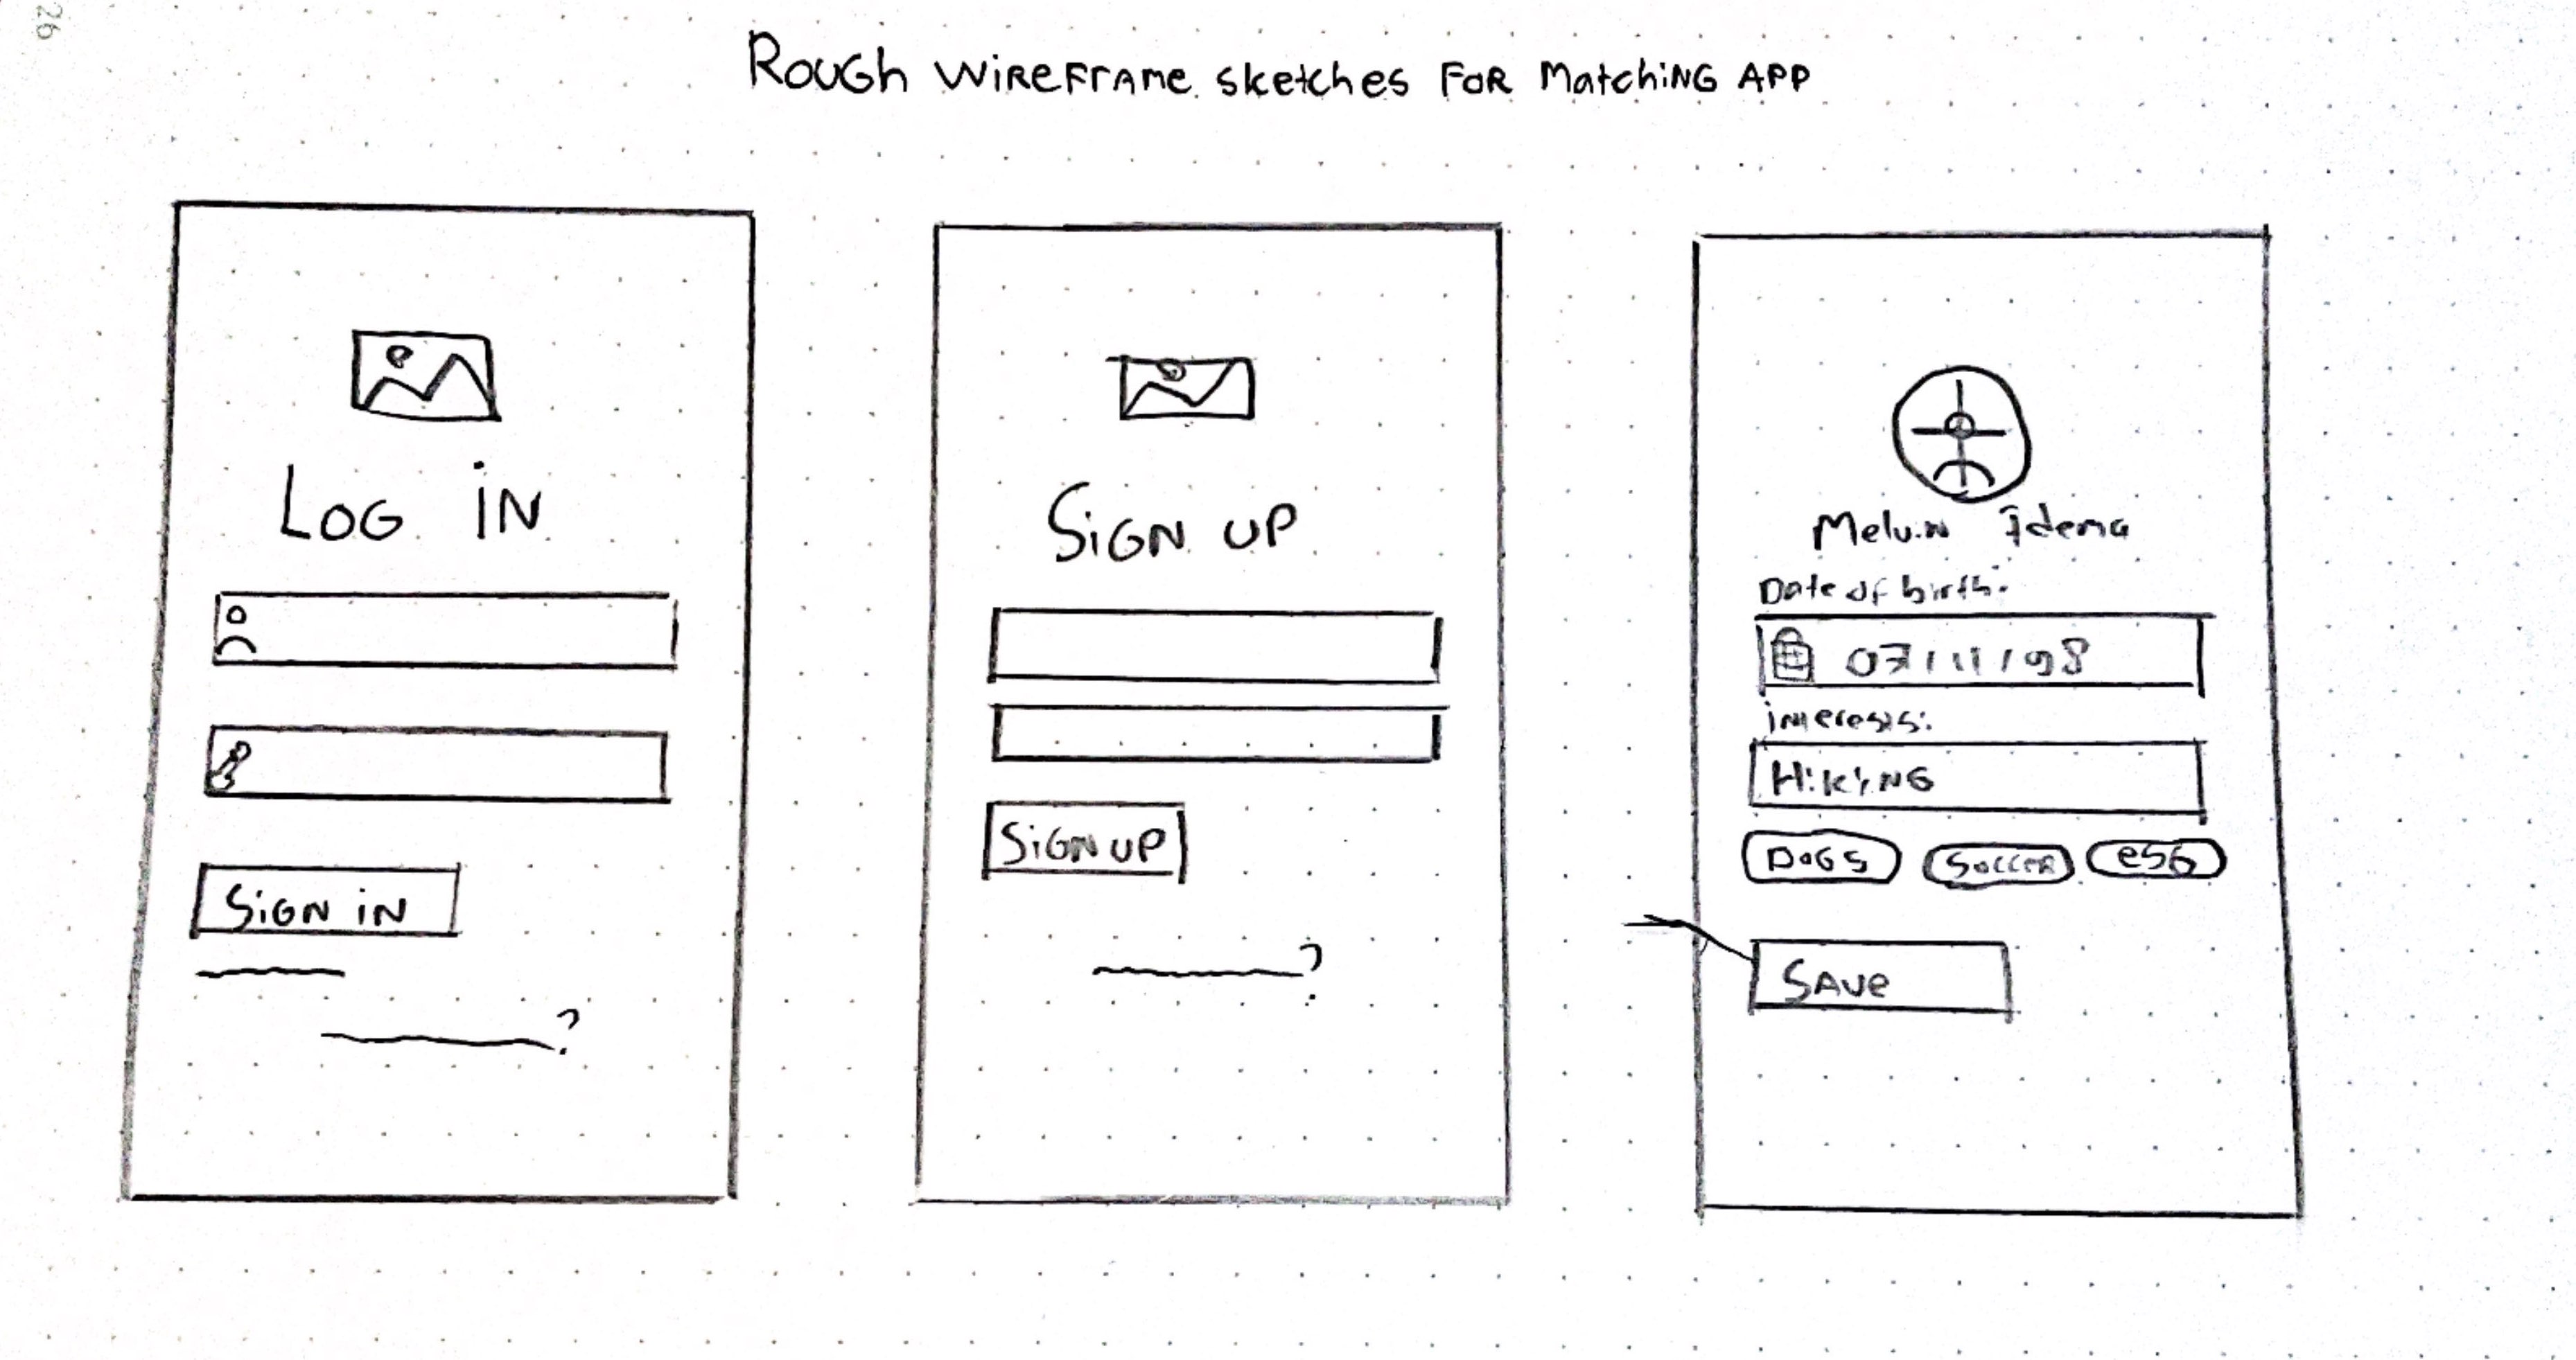 26
ROUGh WiREFrAMe sketches FOR MatchiNG APP
LOG iN
SiGN iN
?
SiGN UP
SiGN UP
?
Melvin Idema
Date of birth:
07/11/98
interests:
HikiNG
DOGS SOCCER
SAVe